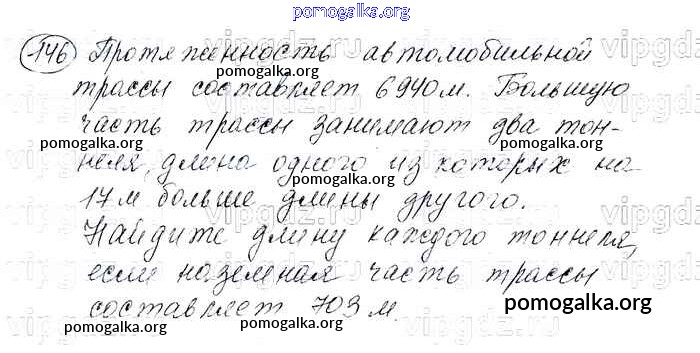 pomogalka.org
146 Протяженность автомобильной
трассы составляет 6940 м. Большую
часть трассы занимают два тон-
неля, длина одного из которых на
17 м больше длины другого.
Найдите длину каждого тоннеля,
если наземная часть трассы
составляет 703 м.
pomogalka.org
pomogalka.org
pomogalka.org
pomogalka.org
pomogalka.org
pomogalka.org
pomogalka.org
pomogalka.org
vipgdz.ru
vipgdz.ru
vipgdz.ru